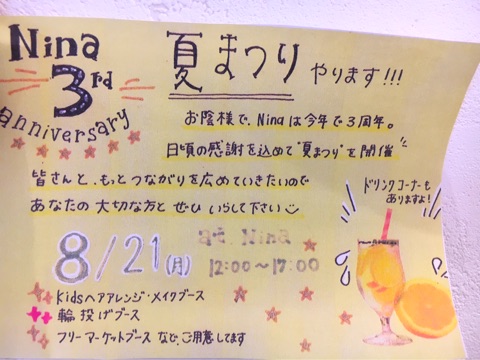 Nina
3rd
anniversary
夏まつり やります!!!
お陰様で、Ninaは今年で3周年。
日頃の感謝を込めて"夏まつり"を開催
皆さんと、もっとつながりを広めていきたいので
あなたの大切な方と ぜひ いらして下さい
ドリンクコーナーも
ありますよ!
8/21(月) at Nina
12:00~17:00
Kidsヘアアレンジ・メイクブース
輪投げブース
フリーマーケットブース など、ご用意してます